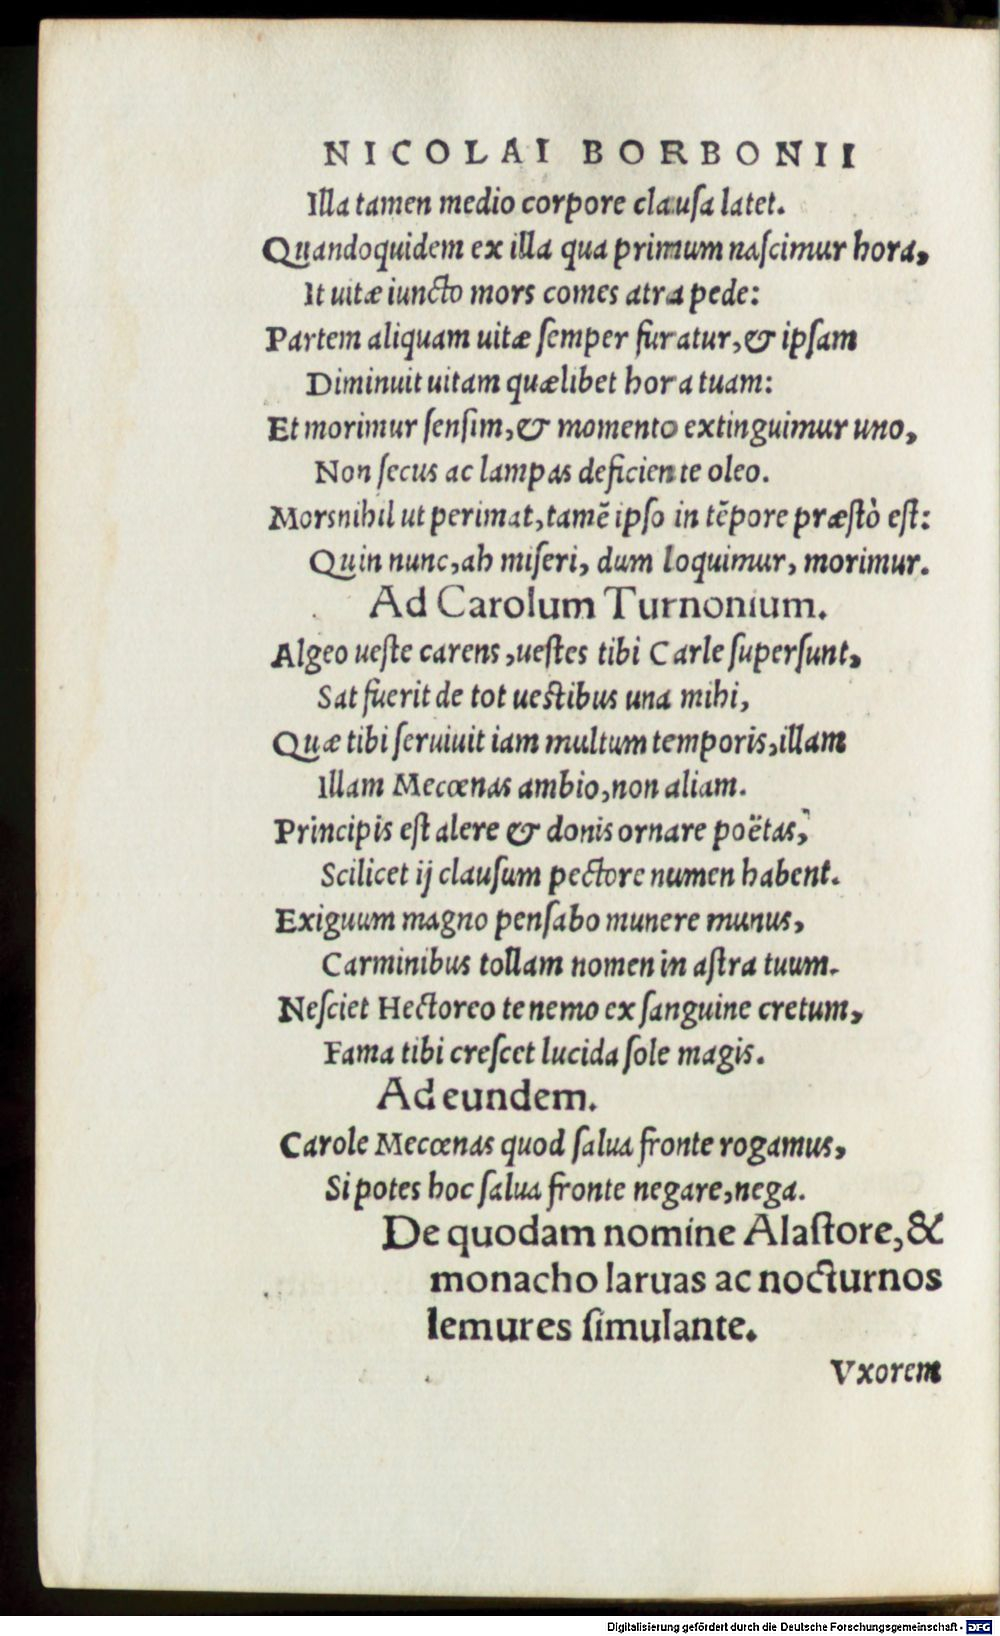 NICOLAI BORBONII
Illa tamen medio corpore clauſa latet.
Quandoquidem ex illa qua primum naſcimur hora,
It uitæ iuncto mors comes atra pede:
Partem aliquam uitæ ſemper furatur, & ipſam
Diminuit uitam quælibet hora tuam:
Et morimur ſenſim, & momento extinguimur uno,
Non ſecus ac lampas deficiente oleo.
Mors nihil ut perimat, tamẽ ipſo in tẽpore præſtò eſt:
Quin nunc, ah miſeri, dum loquimur, morimur.
Ad Carolum Turnonium.
Algeo ueſte carens, ueſtes tibi Carle ſuperſunt,
Sat fuerit de tot ueſtibus una mihi,
Quæ tibi ſeruiuit iam multum temporis, illam
Illam Mecœnas ambio, non aliam.
Principis eſt alere & donis ornare poëtas,
Scilicet ij clauſum pectore numen habent.
Exiguum magno penſabo munere munus,
Carminibus tollam nomen in aſtra tuum.
Neſciet Hectoreo te nemo ex ſanguine cretum,
Fama tibi creſcet lucida ſole magis.
Ad eundem.
Carole Mecœnas quod ſalua fronte rogamus,
Si potes hoc ſalua fronte negare, nega.
De quodam nomine Alaſtore, &
monacho laruas ac nocturnos
lemures ſimulante.
Vxorem
Digitalisierung gefördert durch die Deutsche Forschungsgemeinschaft - DFG